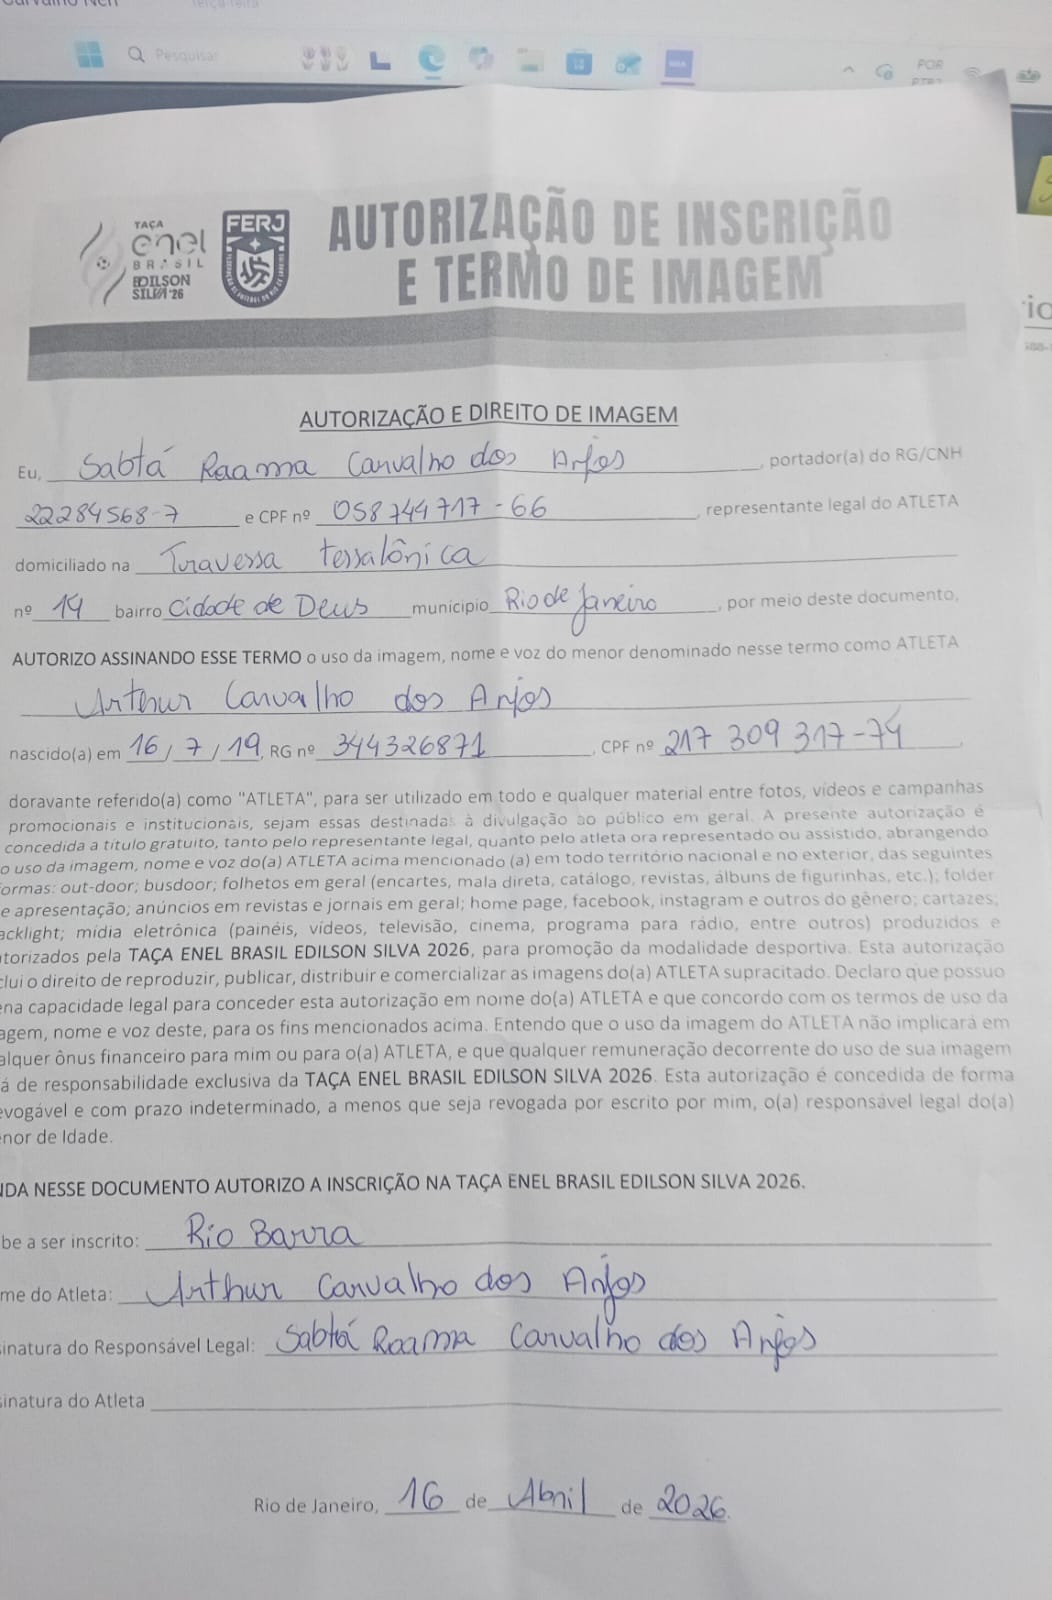 Pesquisar
POR
TAÇA
enel
BRASIL
EDILSON
SILVA '26
FERJ
AUTORIZAÇÃO DE INSCRIÇÃO
E TERMO DE IMAGEM
AUTORIZAÇÃO E DIREITO DE IMAGEM
Eu, Sabtá Raama Carvalho dos Anjos, portador(a) do RG/CNH
22284568-7 e CPF nº 058744717-66, representante legal do ATLETA
domiciliado na Travessa tessalônica
nº 14 bairro Cidade de Deus município Rio de Janeiro, por meio deste documento,
AUTORIZO ASSINANDO ESSE TERMO o uso da imagem, nome e voz do menor denominado nesse termo como ATLETA
Arthur Carvalho dos Anjos
nascido(a) em 16/7/19, RG nº 344326871, CPF nº 217 309 317-74,
doravante referido(a) como "ATLETA", para ser utilizado em todo e qualquer material entre fotos, vídeos e campanhas
promocionais e institucionais, sejam essas destinadas à divulgação ao público em geral. A presente autorização é
concedida a título gratuito, tanto pelo representante legal, quanto pelo atleta ora representado ou assistido, abrangendo
o uso da imagem, nome e voz do(a) ATLETA acima mencionado (a) em todo território nacional e no exterior, das seguintes
ormas: out-door; busdoor; folhetos em geral (encartes, mala direta, catálogo, revistas, álbuns de figurinhas, etc.); folder
e apresentação; anúncios em revistas e jornais em geral; home page, facebook, instagram e outros do gênero; cartazes;
acklight; mídia eletrônica (painéis, vídeos, televisão, cinema, programa para rádio, entre outros) produzidos e
torizados pela TAÇA ENEL BRASIL EDILSON SILVA 2026, para promoção da modalidade desportiva. Esta autorização
clui o direito de reproduzir, publicar, distribuir e comercializar as imagens do(a) ATLETA supracitado. Declaro que possuo
ena capacidade legal para conceder esta autorização em nome do(a) ATLETA e que concordo com os termos de uso da
agem, nome e voz deste, para os fins mencionados acima. Entendo que o uso da imagem do ATLETA não implicará em
alquer ônus financeiro para mim ou para o(a) ATLETA, e que qualquer remuneração decorrente do uso de sua imagem
á de responsabilidade exclusiva da TAÇA ENEL BRASIL EDILSON SILVA 2026. Esta autorização é concedida de forma
evogável e com prazo indeterminado, a menos que seja revogada por escrito por mim, o(a) responsável legal do(a)
nor de Idade.
NDA NESSE DOCUMENTO AUTORIZO A INSCRIÇÃO NA TAÇA ENEL BRASIL EDILSON SILVA 2026.
be a ser inscrito: Rio Barra
me do Atleta: Arthur Carvalho dos Anjos
inatura do Responsável Legal: Sabtá Raama Carvalho dos Anjos
inatura do Atleta
Rio de Janeiro, 16 de Abril de 2026.